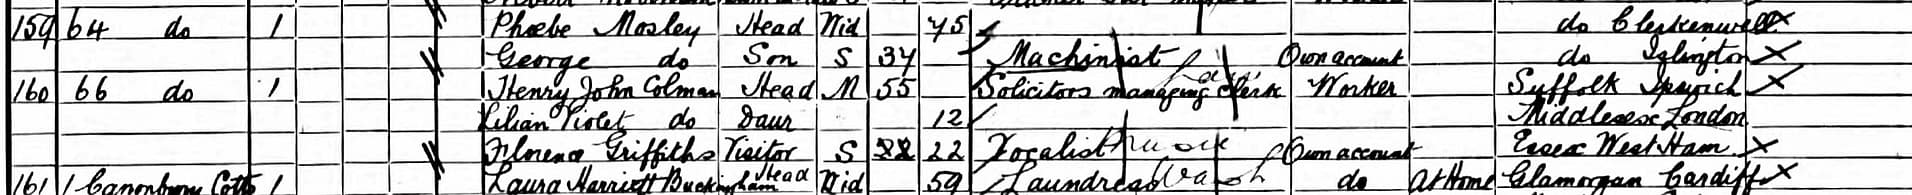 159 64 do 1 Phoebe Mosley Head Wid 75 do Clerkenwell X
George do Son S 34 Machinist Own account do Islington X
160 66 do 1 Henry John Colman Head M 55 Solicitors managing clerk Law Worker Suffolk Ipswich X
Lilian Violet do Daur 12 Middlesex London
Florence Griffiths Visitor S 22 22 Vocalist Music Own account Essex West Ham X
161 1 Canonbury Cotts 1 Laura Harriett Buckingham Head Wid 59 Laundress Wash do At Home Glamorgan Cardiff X